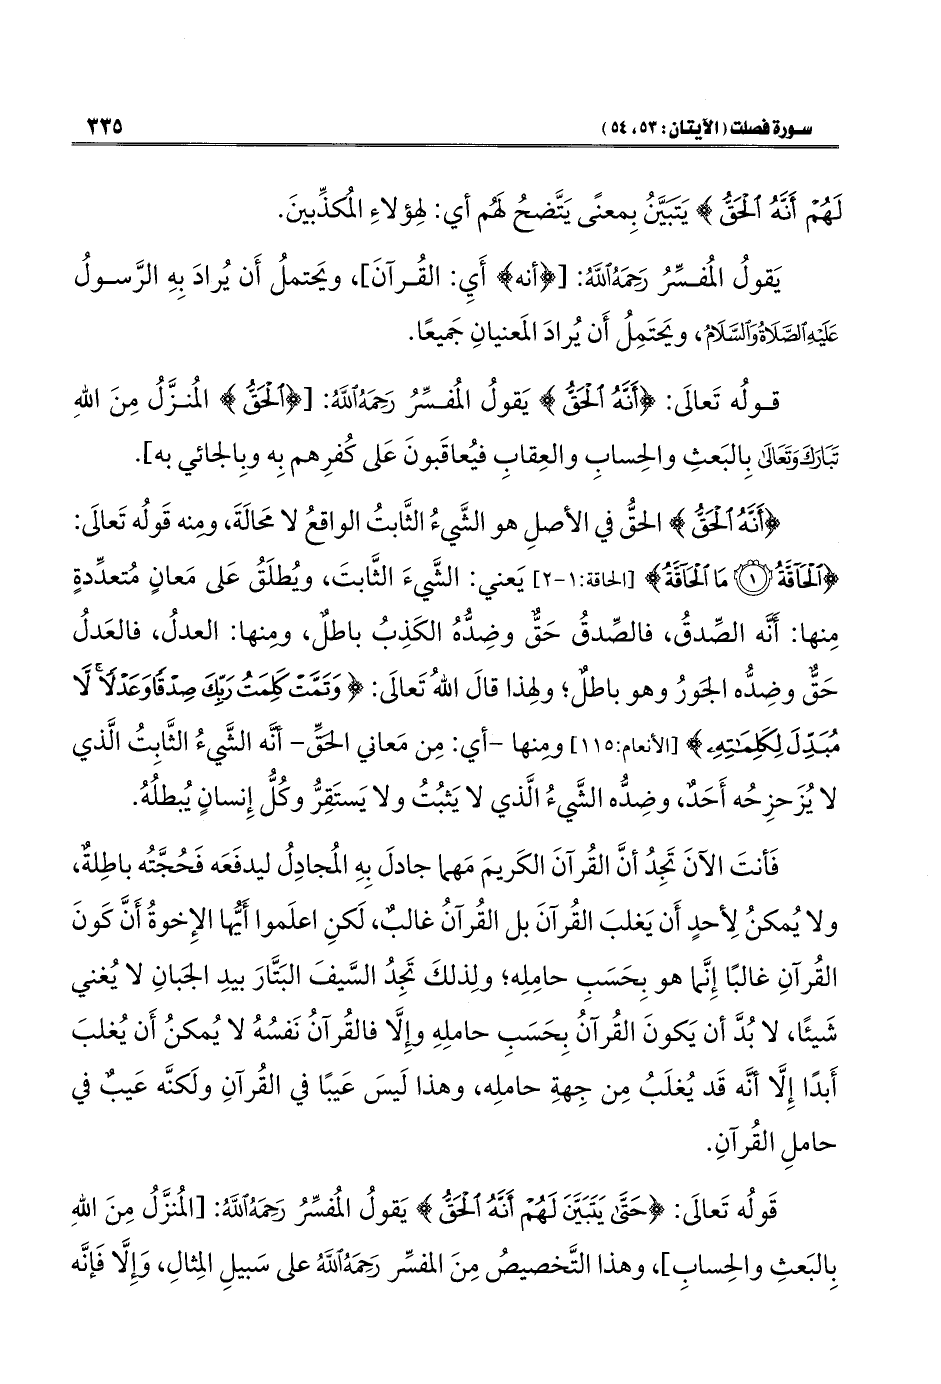 سورة فصلت (الآيتان: ٥٣، ٥٤) ٣٣٥
لَهُمْ أَنَّهُ ٱلْحَقُّ ﴾ يَتَبَيَّنُ بِمعنًى يَتَّضحُ لهُم أي: لهؤلاءِ المُكذِّبينَ.
يَقولُ المُفـسِّرُ رَحِمَهُ ٱللَّهُ: [﴿أنه﴾ أَيِ: القُـرآنَ]، ويَحتملُ أن يُرادَ بِهِ الرَّسـولُ
عَلَيْهِ ٱلصَّلَاةُ وَٱلسَّلَامُ، ويَحتَمِلُ أن يُرادَ المَعنيانِ جَميعًا.
قـولُه تَعالَى: ﴿أَنَّهُ ٱلْحَقُّ ﴾ يَقولُ المُفـسِّرُ رَحِمَهُ ٱللَّهُ: [﴿ٱلْحَقُّ ﴾ المُنـزَّلُ مِنَ اللهِ
تَبَارَكَ وَتَعَالَى بِالبَعثِ والحِسابِ والعِقابِ فيُعاقَبونَ عَلى كُفرِهم بِه وبِالجائي به].
﴿أَنَّهُ ٱلْحَقُّ ﴾ الحَقُّ في الأصلِ هو الشَّيءُ الثَّابتُ الواقعُ لا مَحالَةَ، ومِنه قَولُه تَعالَى:
﴿ٱلْحَآقَّةُ ۝١ مَا ٱلْحَآقَّةُ﴾ [الحاقة:١-٢] يَعني: الشَّيءَ الثَّابتَ، ويُطلَقُ عَلى مَعانٍ مُتعدِّدةٍ
مِنها: أنَّه الصِّدقُ، فالصِّدقُ حَقٌّ وضِدُّهُ الكَذِبُ باطلٌ، ومِنها: العدلُ، فالعَدلُ
حَقٌّ وضِدُّه الجَورُ وهو باطلٌ؛ ولهذا قالَ اللهُ تَعالَى: ﴿ وَتَمَّتْ كَلِمَتُ رَبِّكَ صِدْقًا وَعَدْلًا ۚ لَّا
مُبَدِّلَ لِكَلِمَٰتِهِۦ ﴾ [الأنعام:١١٥] ومِنها -أي: مِن مَعاني الحَقِّ- أنَّه الشَّيءُ الثَّابتُ الَّذي
لا يُزَحزِحُه أَحَدٌ، وضِدُّه الشَّيءُ الَّذي لا يَثبُتُ ولا يَستَقِرُّ وكُلُّ إنسانٍ يُبطلُهُ.
فَأنتَ الآنَ تَجِدُ أنَّ القُرآنَ الكَريمَ مَهما جادلَ بِه المُجادِلُ ليدفَعَه فَحُجَّتُه باطِلةٌ،
ولا يُمكنُ لِأحدٍ أن يَغلبَ القُرآنَ بل القُرآنُ غالبٌ، لَكنِ اعلَموا أيُّها الإخوةُ أنَّ كَونَ
القُرآنِ غالبًا إنَّما هو بِحَسَبِ حامِلِه؛ ولِذلكَ تَجِدُ السَّيفَ البَتَّارَ بيدِ الجَبانِ لا يُغني
شَيئًا، لا بُدَّ أن يَكونَ القُرآنُ بِحَسَبِ حاملِهِ وإلَّا فالقُرآنُ نَفسُهُ لا يُمكنُ أن يُغلبَ
أبدًا إلَّا أنَّه قد يُغلَبُ مِن جِهةِ حاملِه، وهذا لَيسَ عَيبًا في القُرآنِ ولكنَّه عَيبٌ في
حاملِ القُرآنِ.
قَولُه تَعالَى: ﴿حَتَّىٰ يَتَبَيَّنَ لَهُمْ أَنَّهُ ٱلْحَقُّ ﴾ يَقولُ المُفسِّرُ رَحِمَهُ ٱللَّهُ: [المُنزَّلُ مِنَ اللهِ
بِالبَعثِ والحِسابِ]، وهذا التَّخصيصُ مِنَ المفسِّرِ رَحِمَهُ ٱللَّهُ على سَبيلِ المِثالِ، وَإلَّا فَإنَّه